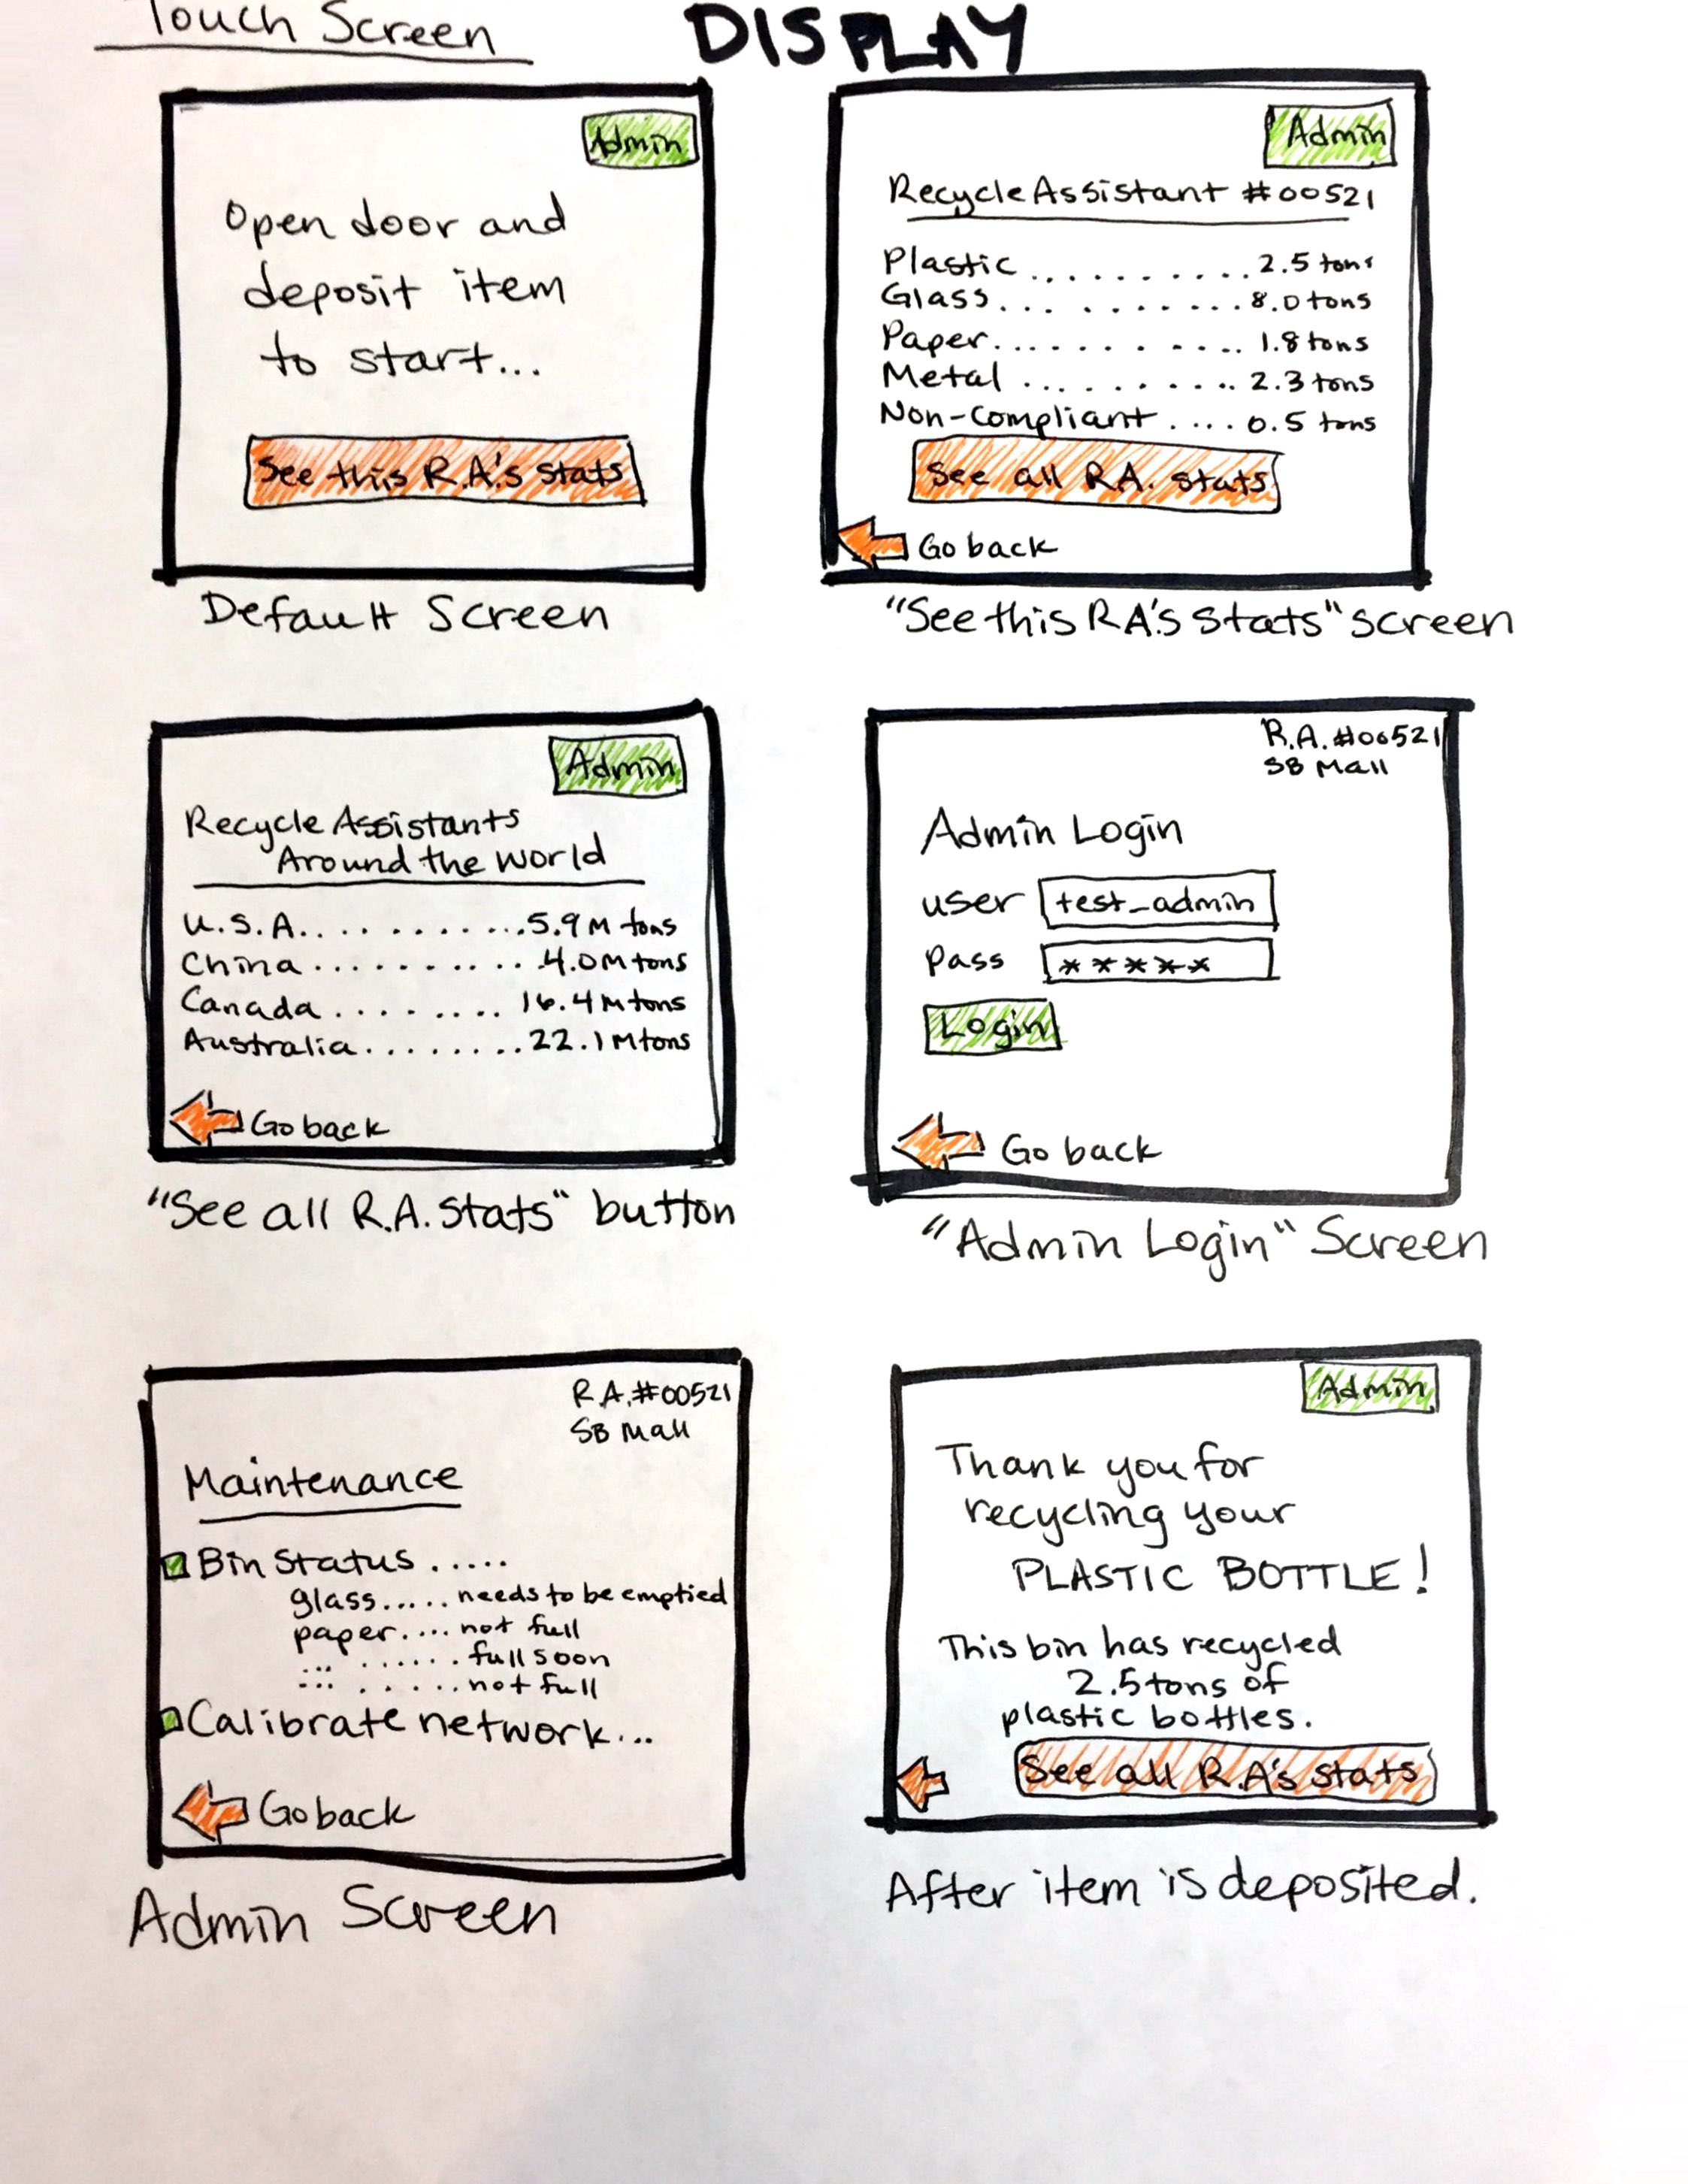 Touch Screen
DISPLAY
Admin
Open door and
deposit item
to start...
See this R.A.'s stats
Default Screen
Admin
Recycle Assistant #00521
Plastic .......... 2.5 tons
Glass... ......... 8.0 tons
Paper............. 1.8 tons
Metal ........... 2.3 tons
Non-Compliant .... 0.5 tons
See all R.A. stats
Go back
"See this RA's stats" screen
Admin
Recycle Assistants
Around the world
U.S.A............5.9M tons
China...........4.0M tons
Canada ........ 16.4M tons
Australia........22.1M tons
Go back
"See all R.A. stats" button
R.A. #00521
SB Mall
Admin Login
user test_admin
pass *****
Login
Go back
"Admin Login" Screen
R.A. #00521
SB Mall
Maintenance
Bin Status .....
glass..... needs to be emptied
paper.... not full
... ...... full soon
... ...... not full
Calibrate network...
Go back
Admin Screen
Admin
Thank you for
recycling your
PLASTIC BOTTLE!
This bin has recycled
2.5 tons of
plastic bottles.
See all R.A's stats
After item is deposited.